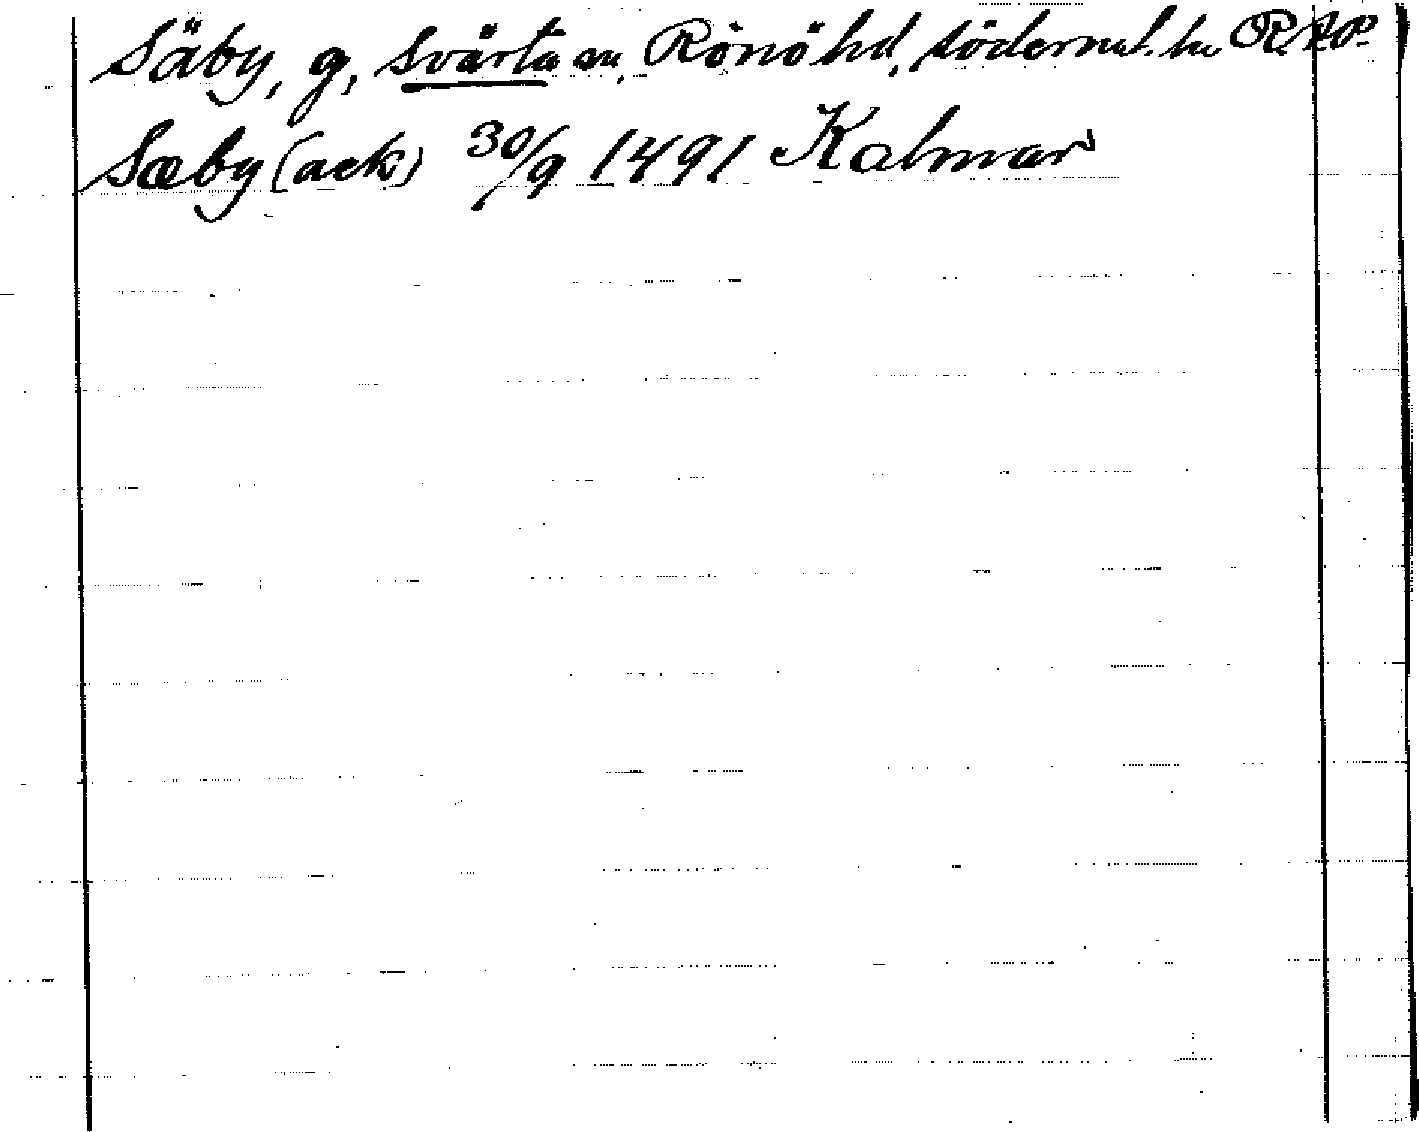 Säby, g, Svärta sn, Rönö hd, Södermel. ln RAp
Sæby (ack) 30/9 1491 Kalmar